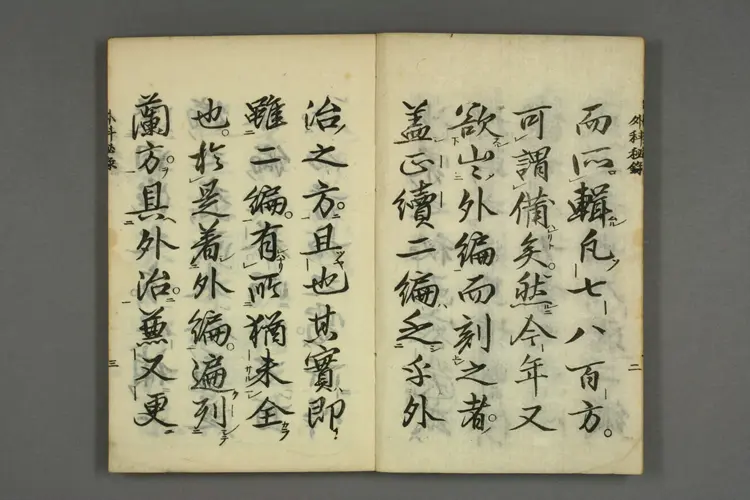 外科秘錄
二
而所。輯凡七八百方。
可謂備矣。然今年又
欲出外編而刻之者。
蓋正續二編乏乎外
治之方。且也其實即
雖二編。有所猶未全
也。於是着外編。遍列
蘭方。具外治。兼又更
三